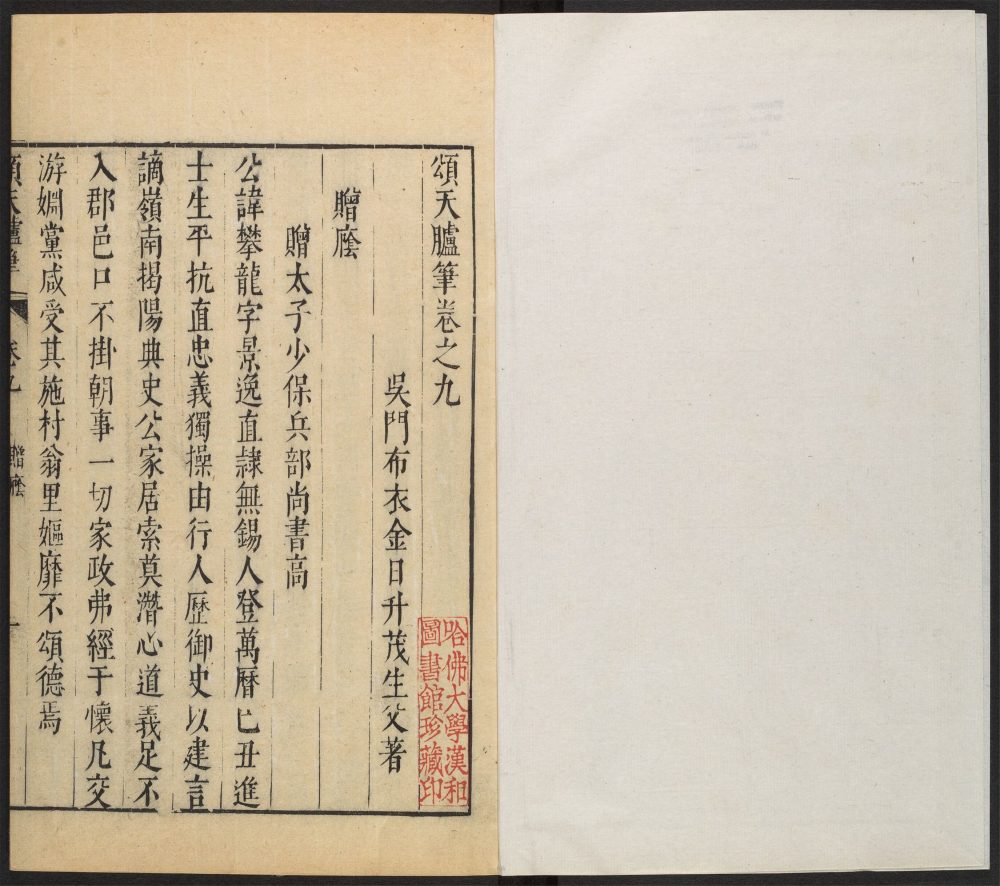 頌天臚筆卷之九
吳門布衣金日升茂生父著
贈廕
贈太子少保兵部尚書高
公諱攀龍字景逸直隷無錫人登萬曆己丑進
士生平抗直忠義獨操由行人歷御史以建言
謫嶺南揭陽典史公家居索莫潛心道義足不
入郡邑口不掛朝事一切家政弗經于懷凡交
游婣黨咸受其施村翁里嫗靡不頌德焉
頌天臚筆 卷九 贈廕 一
哈佛大學漢和
圖書館珍藏印